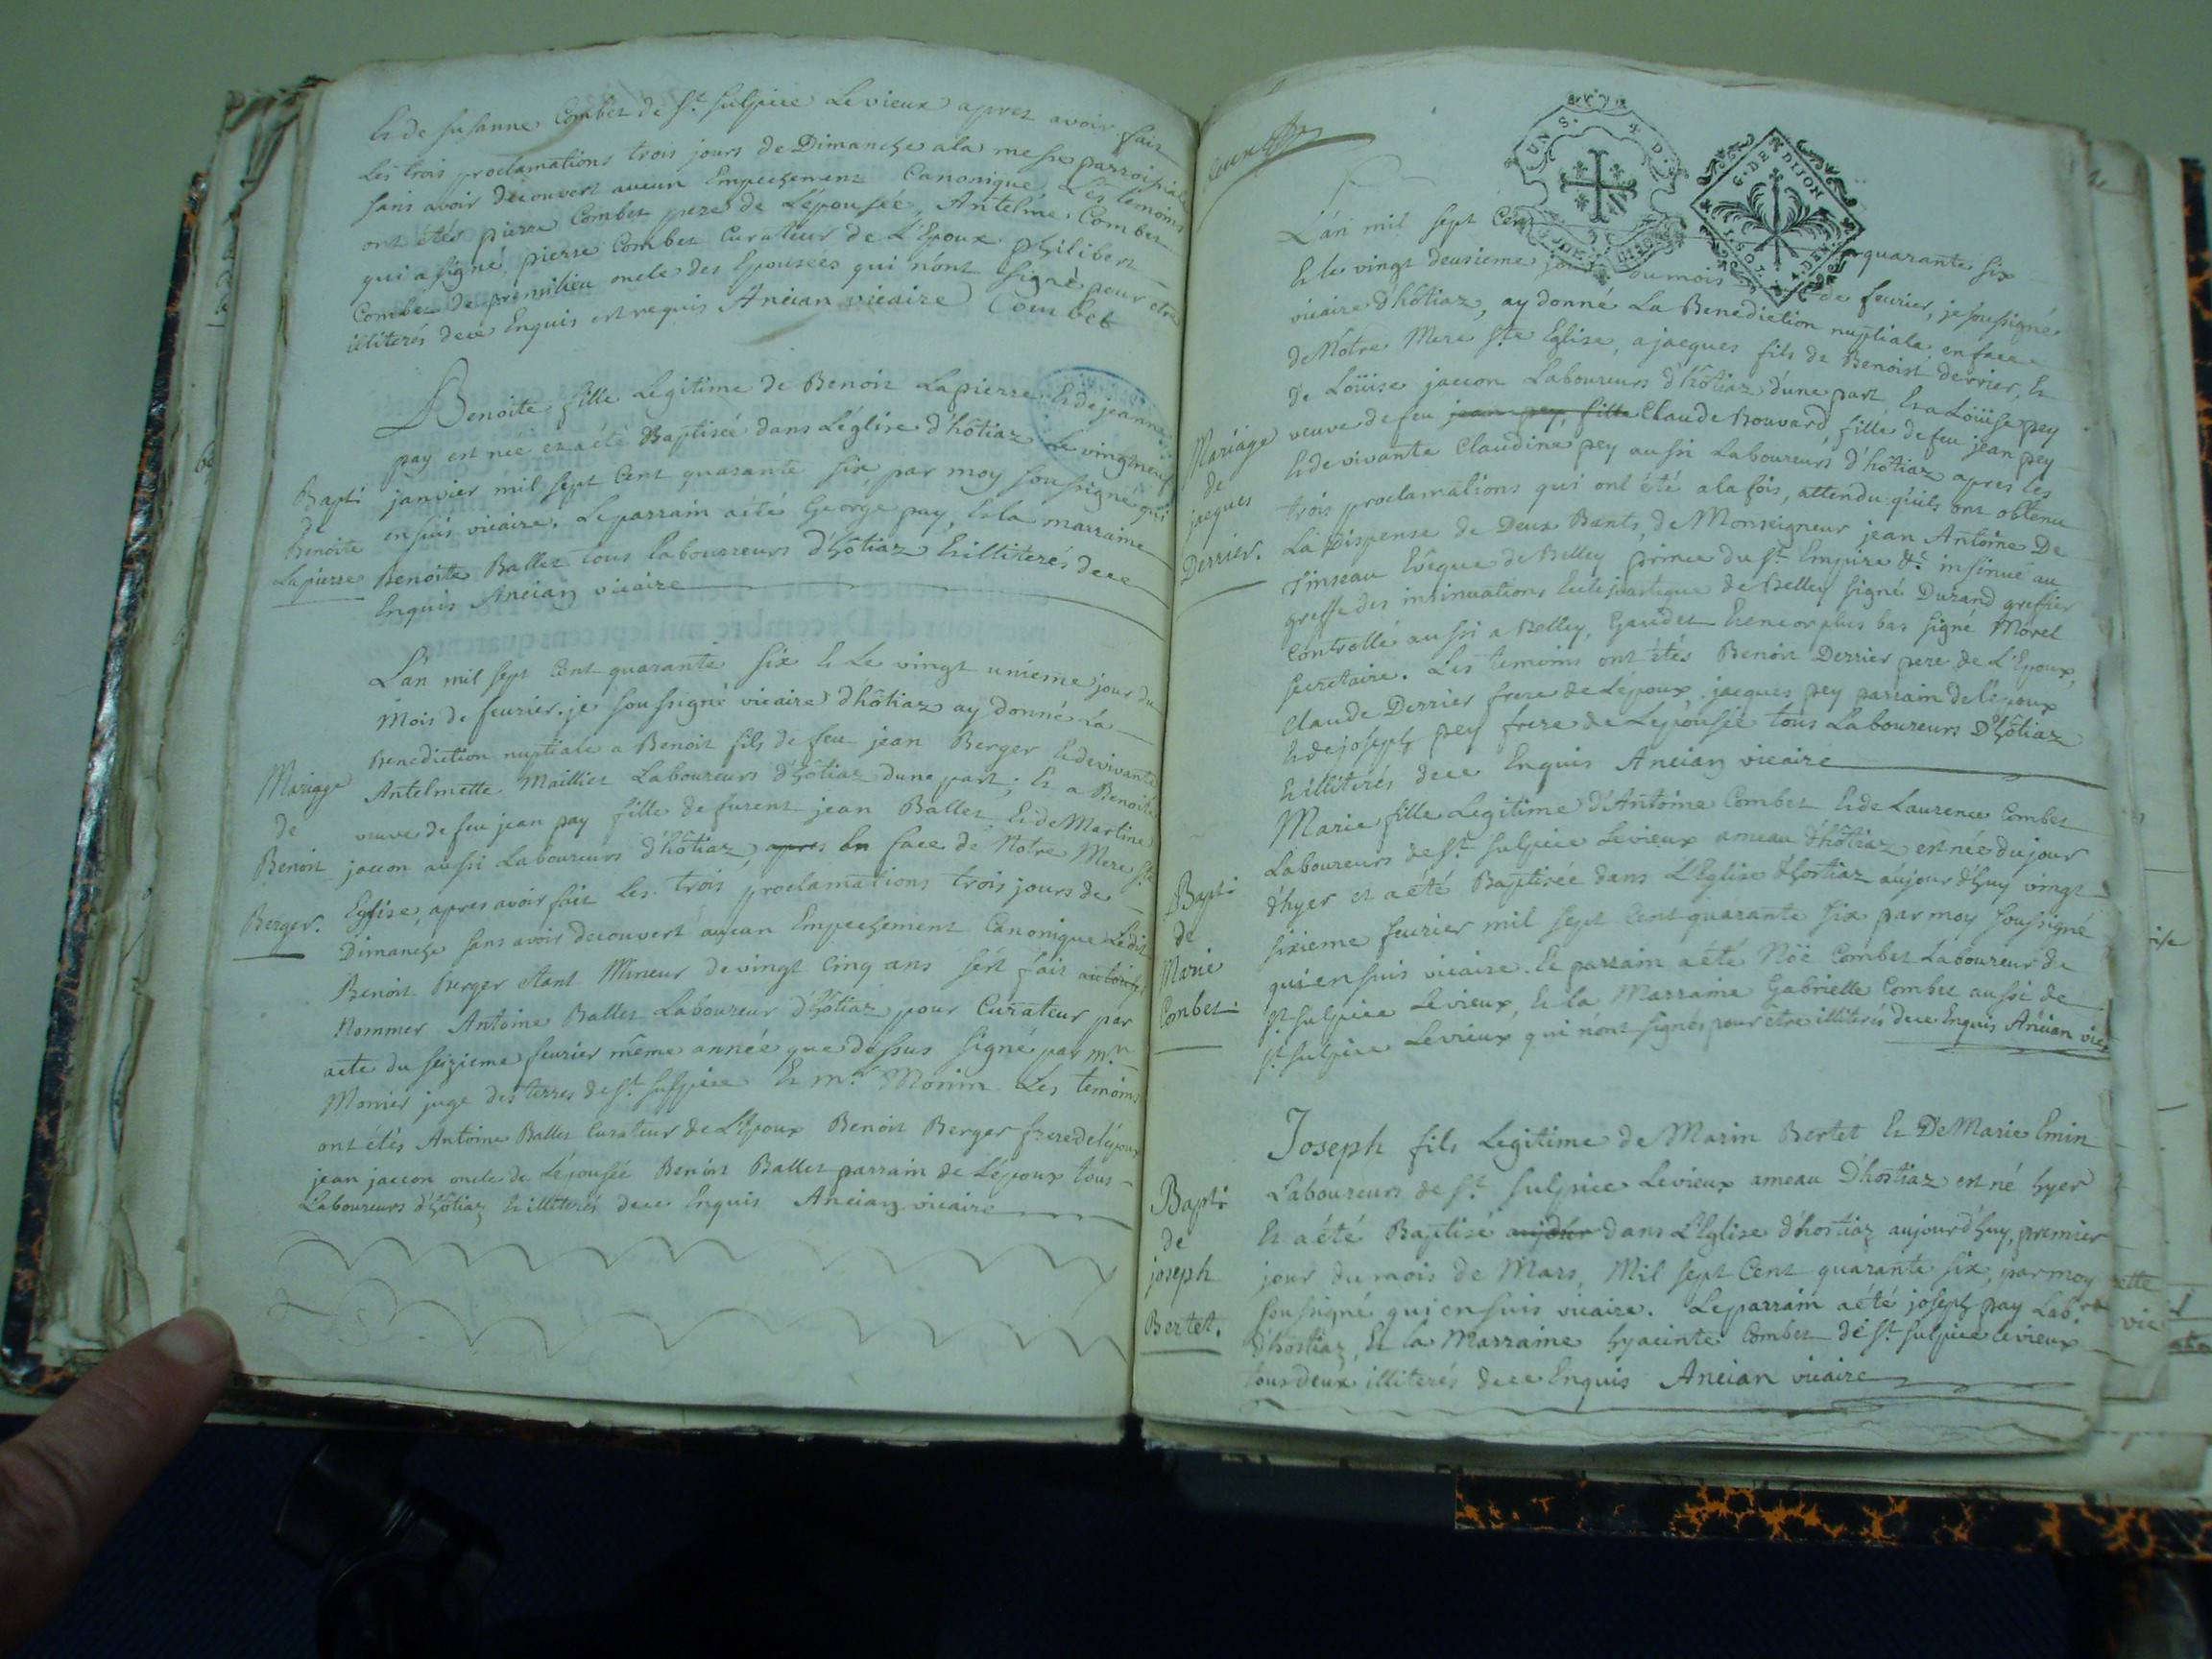 Et de Susanne Combet de St. Sulpice Levieux apres avoir fait
Les trois proclamations trois jours de Dimanche ala messe parroissiale
sans avoir decouvert aucun Empechement Canonique, Les temoins
ont étés pierre Combet pere de L'épousée, Antelme Combet
qui a signé, pierre Combet Curateur de L'Epoux philibert
Combet de premilieu oncle des Epousees qui n'ont signé pour etre
illiterés dece Enquis et requis Ancian vicaire Combet
Benoite fille Legitime de Benoit Lapierre Et de jeanne
pay est nee et a été Baptisée dans L'église d'hôtiaz Le vingtneuf
Bapt: janvier mil sept Cent quarante six, par moy soussigné qui
de
Benoite en suis vicaire. Le parrain a été George pay, Et la marraine
Lapierre Benoite Ballet tous laboureurs d'hôtiaz Et illiterés dece
Enquis Ancian vicaire
L'an mil sept Cent quarante six Et Le vingt unieme jour du
Mois de feurier. je soussigné vicaire d'hôtiaz ay donné La
Benediction nuptiale a Benoit fils de feu jean Berger Et de vivante
Mariage Antelmette Maillier Laboureurs d'hôtiaz dune part; Et a Benoite
de veuve de feu jean pay fille de furent jean Ballet Et de Martine
Benoit jaccon aussi Laboureurs d'hôtiaz, apres En face de Notre Mere Ste
Berger. Eglise, apres avoir fait Les trois proclamations trois jours de
Dimanche sans avoir decouvert aucun Empechement Canonique Ledit
Benoit Berger étant Mineur de vingt Cinq ans s'est fait
Nommer Antoine Ballet Laboureur d'hôtiaz pour Curateur par
acte du seizieme feurier même année que dessus signé par mr.
Monier juge des terres de St. Sulpice Et mr. Monin Les temoins
ont étés Antoine Ballet Curateur de L'Epoux Benoit Berger frere de l'époux
jean jaccon oncle de L'épousée Benoit Ballet parrain de L'époux tous
Laboureurs d'hôtiaz Et illiterés dece Enquis Ancian vicaire
UN S. 4 D.
G. DE DIJON
L'an mil sept Cent quarante six
Et le vingt deusieme jour du mois de feurier, je soussigné
vicaire d'hôtiaz, ay donné La Benediction nuptiale, en face
de Notre Mere Ste Eglise, a jacques fils de Benoist derrier, Et
de Loüise jaccon Laboureurs d'hôtiaz d'une part, Et a Loüise pey
Mariage veuve de feu jean pey, fille Claude Bouvard, fille de feu jean pey
de Et de vivante Claudine pey aussi Laboureurs d'hôtiaz apres les
jacques trois proclamations qui ont été ala fois, attendu quils ont obtenu
Derrier. La Dispense de Deux Bants, de Monseigneur jean Antoine De
Tinseau Evêque de Belley prince du St. Empire &c. insinué au
greffe des insinuations Ecclesiastique de Belley signé Durand greffier
Controllé aussi a Belley, Gaudet Et encor plus bas signé Morel
secretaire. Les temoins ont étés Benoit Derrier pere de L'Epoux,
Claude Derrier frere de L'époux, jacques pey parrain de l'époux
Et de joseph pey frere de L'epousée tous Laboureurs D'hôtiaz
Et illiterés dece Enquis Ancian vicaire
Marie fille Legitime d'Antoine Combet Et de Laurence Combet
Laboureurs de St. Sulpice Levieux ameau d'hôtiaz est née du jour
Bapt: d'hyer et a été Baptisée dans L'Eglise d'hostiaz aujour d'huy vingt
de sixieme feurier mil sept Cent quarante six par moy soussigné
Marie qui en suis vicaire. Le parrain a été Nöé Combet Laboureur de
Combet. St. Sulpice Levieux, Et la Marraine Gabrielle Combet aussi de
St. Sulpice Levieux qui nont signés pour etre illiterés dece Enquis Ancian vic
Joseph fils Legitime de Marin Bertet Et De Marie Emin
Bapt: Laboureurs de St. Sulpice Levieux ameau D'hostiaz est né hyer
de Et a été Baptisé aujour dans L'Eglise d'hostiaz aujourd'huy, premier
joseph jour du mois de Mars, Mil sept Cent quarante six, par moy
Bertet. soussigné qui en suis vicaire. Le parrain a été joseph pay Lab.r
d'hostiaz, Et la Marraine hyacinte Combet de St. Sulpice Levieux
tous deux illiterés dece Enquis Ancian vicaire